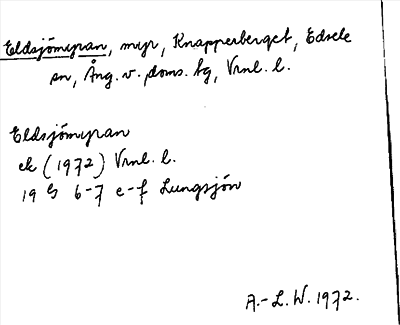 Eldsjömyran, myr, Knapperberget, Edsele
sn, Ång. v. doms. tg, Vrnl. l.
Eldsjömyran
ek (1972) Vrnl. l.
19 G 6-7 e-f Lungsjön
A.-L. W. 1972.